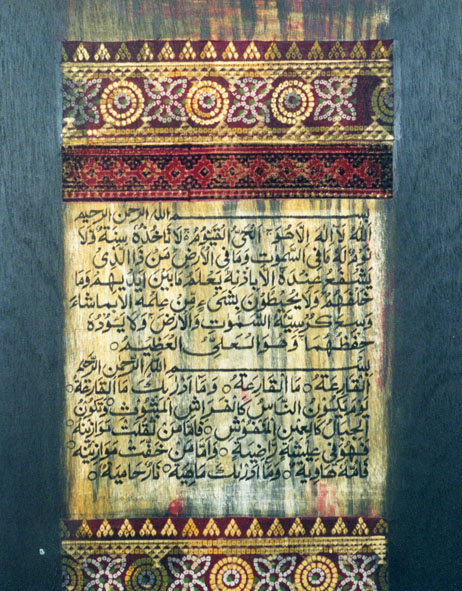 بسم الله الرحمن الرحيم
الله لا اله الا هو الحي القيوم لا تاخذه سنة ولا
نوم له ما في السموت وما في الارض من ذا الذي
يشفع عنده الا باذنه يعلم ما بين ايديهم وما
خلفهم ولا يحيطون بشيء من علمه الا بما شاء
وسع كرسيه السموت والارض ولا يوده
حفظهما وهو العلي العظيم
بسم الله الرحمن الرحيم
القارعة ما القارعة وما ادريك ما القارعة
يوم يكون الناس كالفراش المبثوث وتكون
الجبال كالعهن المنفوش فاما من ثقلت موازينه
فهو في عيشة راضية واما من خفت موازينه
فامه هاوية وما ادريك ماهيه نار حامية